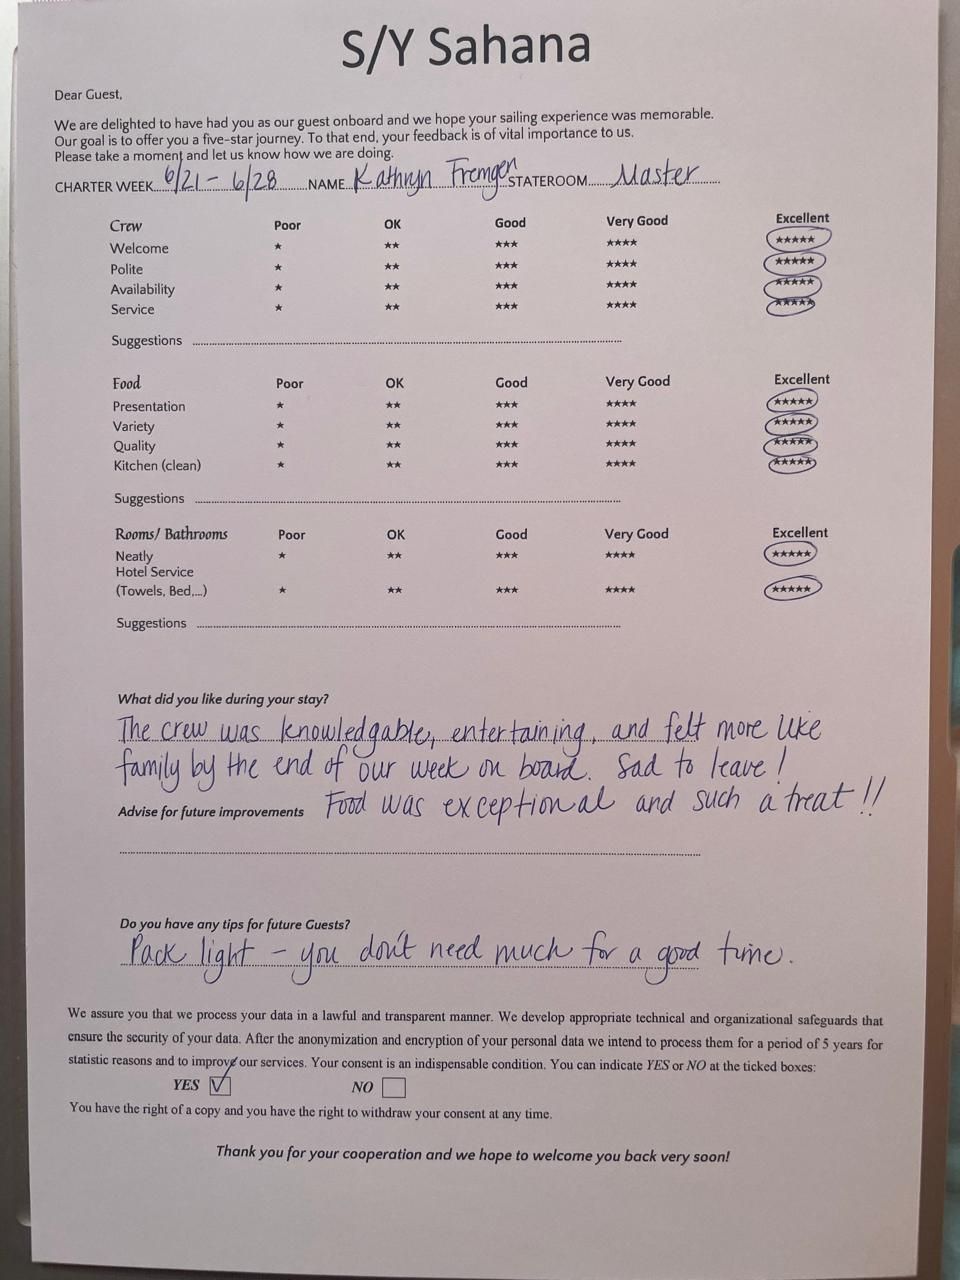 S/Y Sahana
Dear Guest,
We are delighted to have had you as our guest onboard and we hope your sailing experience was memorable.
Our goal is to offer you a five-star journey. To that end, your feedback is of vital importance to us.
Please take a moment and let us know how we are doing.
CHARTER WEEK 6/21 - 6/28 NAME Kathryn Fremgen STATEROOM Master
Crew Poor OK Good Very Good Excellent
Welcome ★ ★★ ★★★ ★★★★ ★★★★★
Polite ★ ★★ ★★★ ★★★★ ★★★★★
Availability ★ ★★ ★★★ ★★★★ ★★★★★
Service ★ ★★ ★★★ ★★★★ ★★★★★
Suggestions
Food Poor OK Good Very Good Excellent
Presentation ★ ★★ ★★★ ★★★★ ★★★★★
Variety ★ ★★ ★★★ ★★★★ ★★★★★
Quality ★ ★★ ★★★ ★★★★ ★★★★★
Kitchen (clean) ★ ★★ ★★★ ★★★★ ★★★★★
Suggestions
Rooms/ Bathrooms Poor OK Good Very Good Excellent
Neatly ★ ★★ ★★★ ★★★★ ★★★★★
Hotel Service
(Towels, Bed,...) ★ ★★ ★★★ ★★★★ ★★★★★
Suggestions
What did you like during your stay?
The crew was knowledgable, entertaining, and felt more like
family by the end of our week on board. Sad to leave!
Advise for future improvements Food was exceptional and such a treat!!
Do you have any tips for future Guests?
Pack light - you don't need much for a good time.
We assure you that we process your data in a lawful and transparent manner. We develop appropriate technical and organizational safeguards that
ensure the security of your data. After the anonymization and encryption of your personal data we intend to process them for a period of 5 years for
statistic reasons and to improve our services. Your consent is an indispensable condition. You can indicate YES or NO at the ticked boxes:
YES ☑ NO ☐
You have the right of a copy and you have the right to withdraw your consent at any time.
Thank you for your cooperation and we hope to welcome you back very soon!